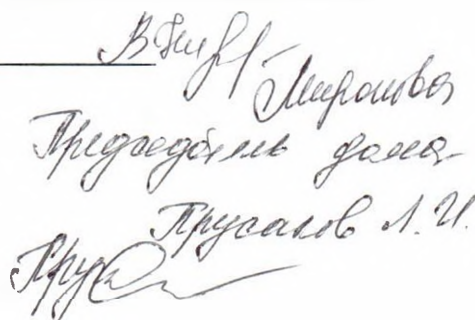 Миронова
Председатель дома
Прусаков Л. И.